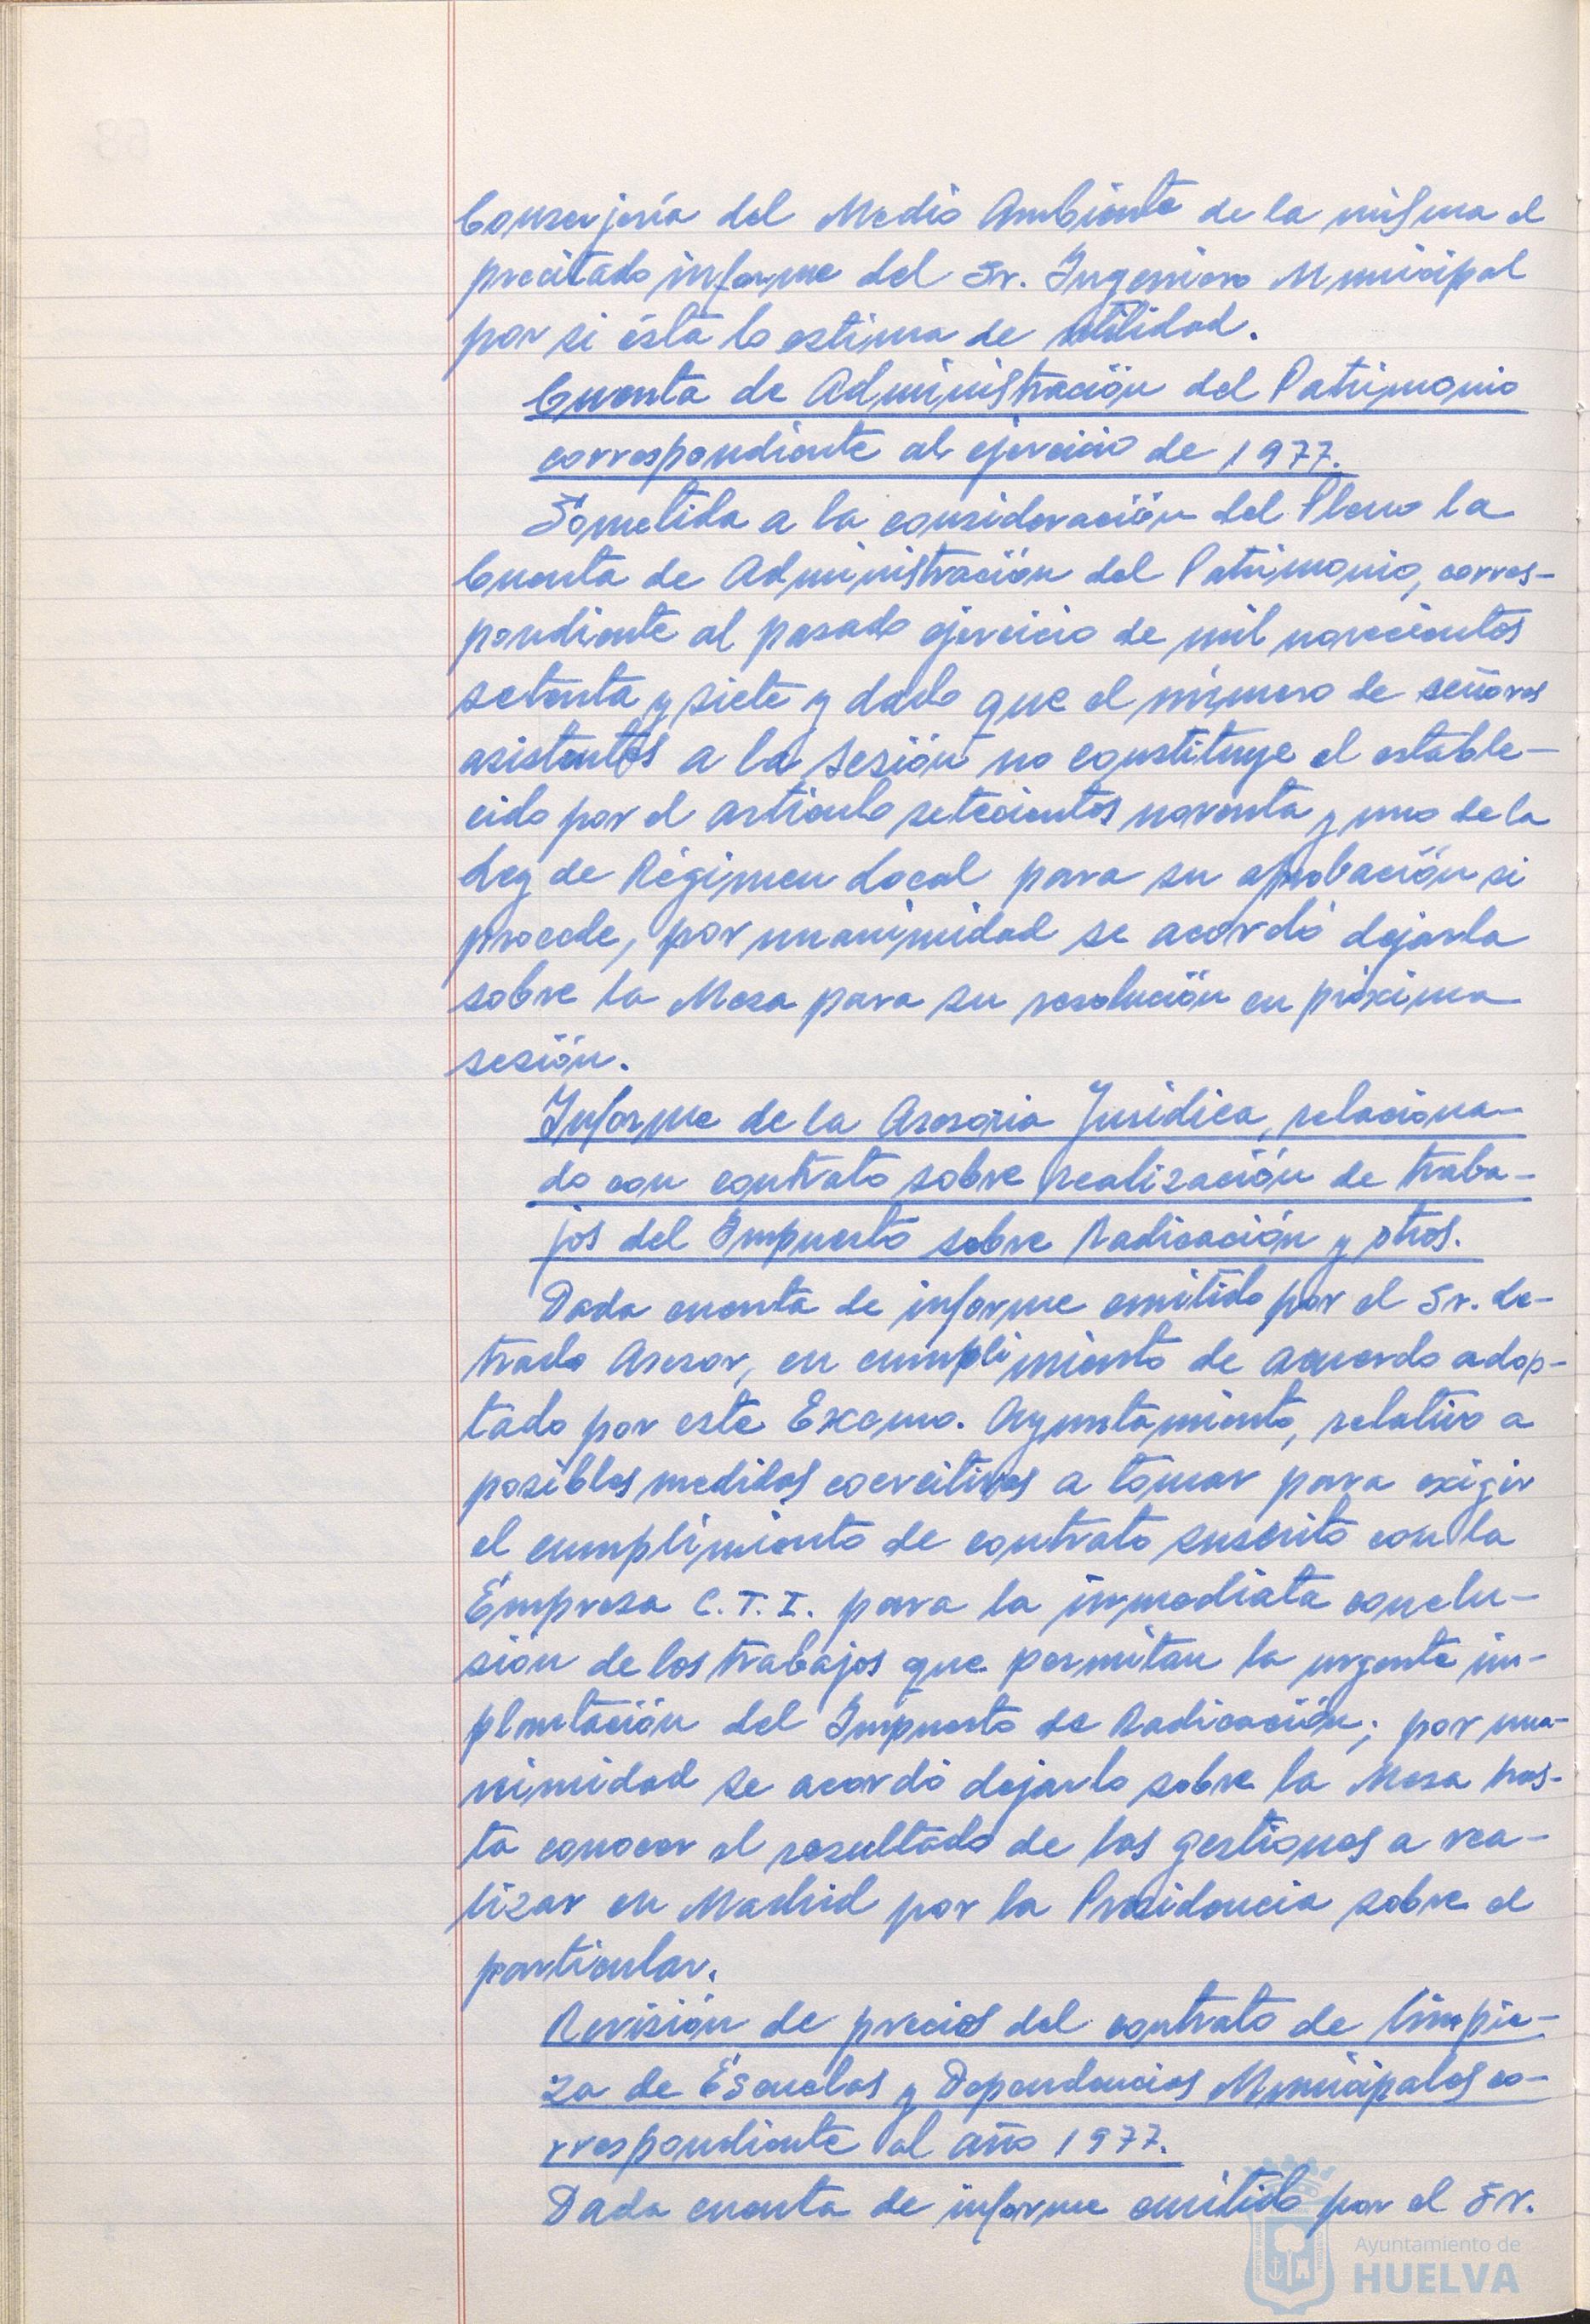 Conserjería del Medio Ambiente de la misma el
precitado informe del Sr. Ingeniero Municipal
por si ésta lo estima de utilidad.
Cuenta de Administración del Patrimonio
correspondiente al ejercicio de 1977.
Sometida a la consideración del Pleno la
Cuenta de Administración del Patrimonio, corres-
pondiente al pasado ejercicio de mil novecientos
setenta y siete y dado que el número de señores
asistentes a la sesión no constituye el estable-
cido por el artículo setecientos noventa y uno de la
Ley de Régimen Local para su aprobación si
procede, por unanimidad se acordó dejarla
sobre la Mesa para su resolución en próxima
sesión.
Informe de la Asesoria Juridica, relaciona-
do con contrato sobre realización de traba-
jos del Impuesto sobre Radicación y otros.
Dada cuenta de informe emitido por el Sr. Le-
trado Asesor, en cumplimiento de acuerdo adop-
tado por este Excmo. Ayuntamiento, relativo a
posibles medidas coercitivas a tomar para exigir
el cumplimiento de contrato suscrito con la
Empresa C.T.I. para la inmediata conclu-
sión de los trabajos que permitan la urgente im-
plantación del Impuesto de Radicación; por una-
nimidad se acordó dejarlo sobre la Mesa has-
ta conocer el resultado de las gestiones a rea-
lizar en Madrid por la Presidencia sobre el
particular.
Revisión de precios del contrato de limpie-
za de Escuelas y Dependencias Municipales co-
rrespondiente al año 1977.
Dada cuenta de informe emitido por el Sr.
Ayuntamiento de
HUELVA